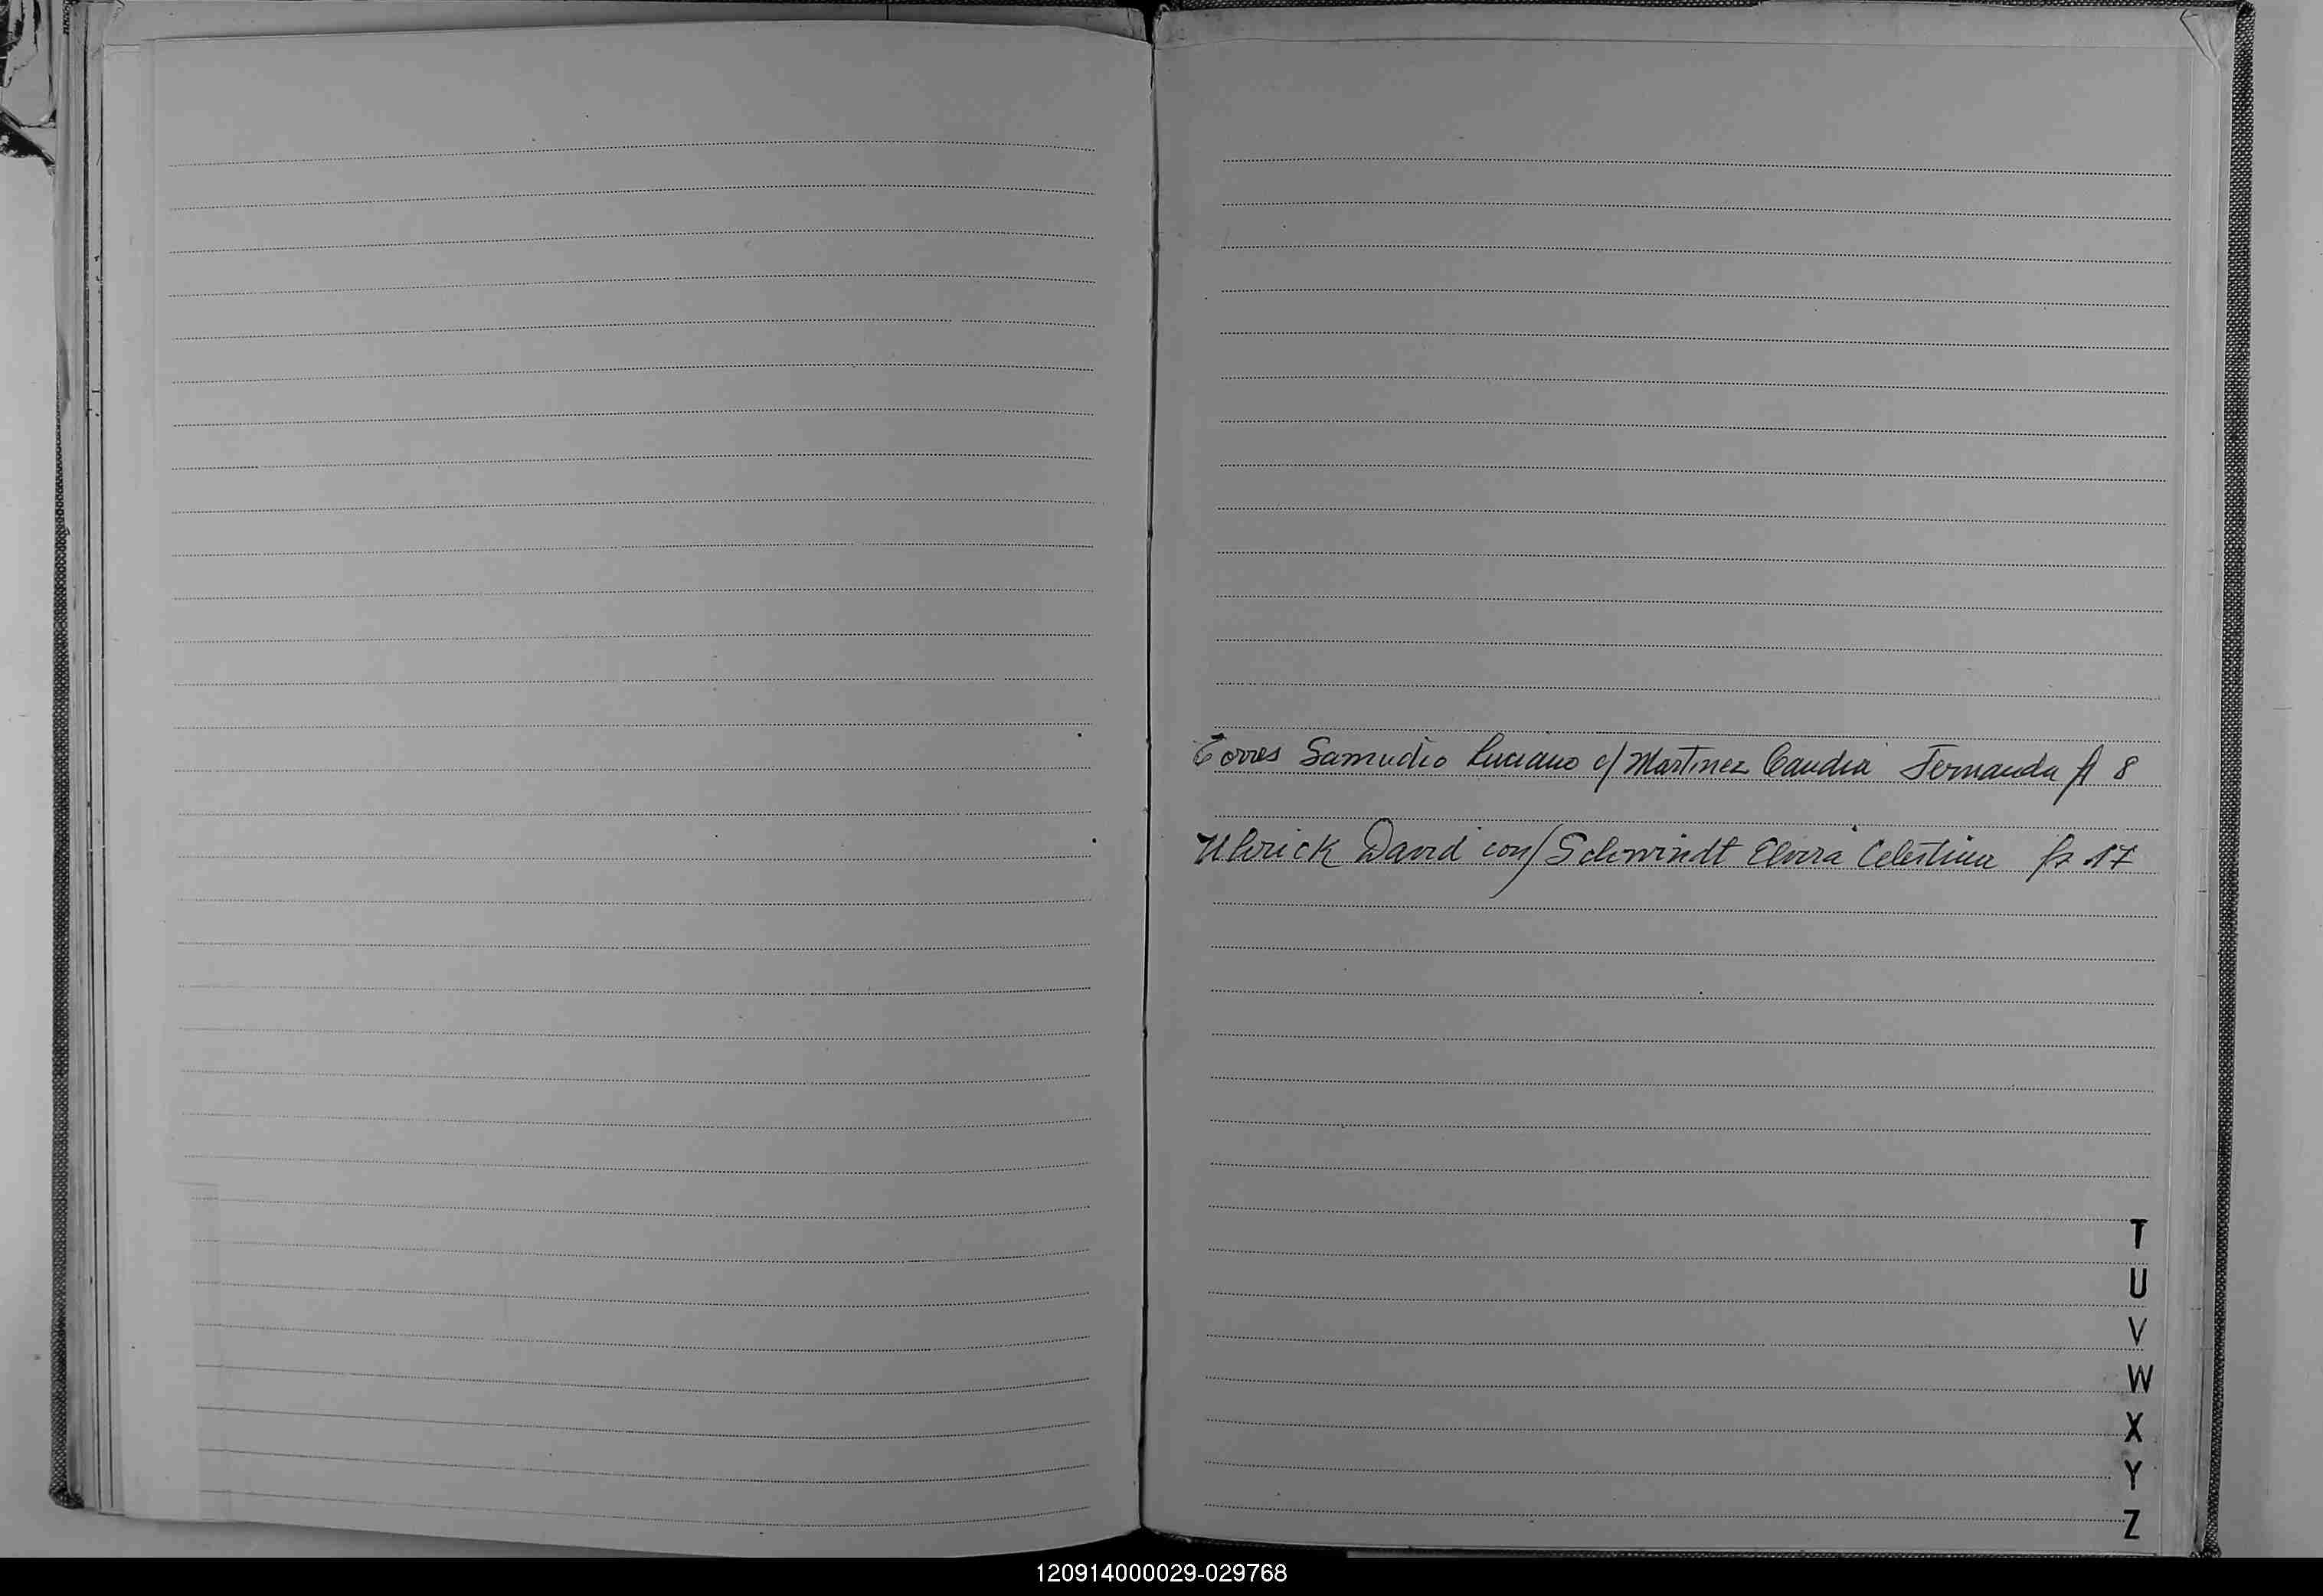 Torres Samudio Luciano c/ Martinez Candia Fernanda fs 8
Ulrick David con/ Schwindt Elvira Celestina fs 17
T
U
V
W
X
Y
Z
120914000029-029768